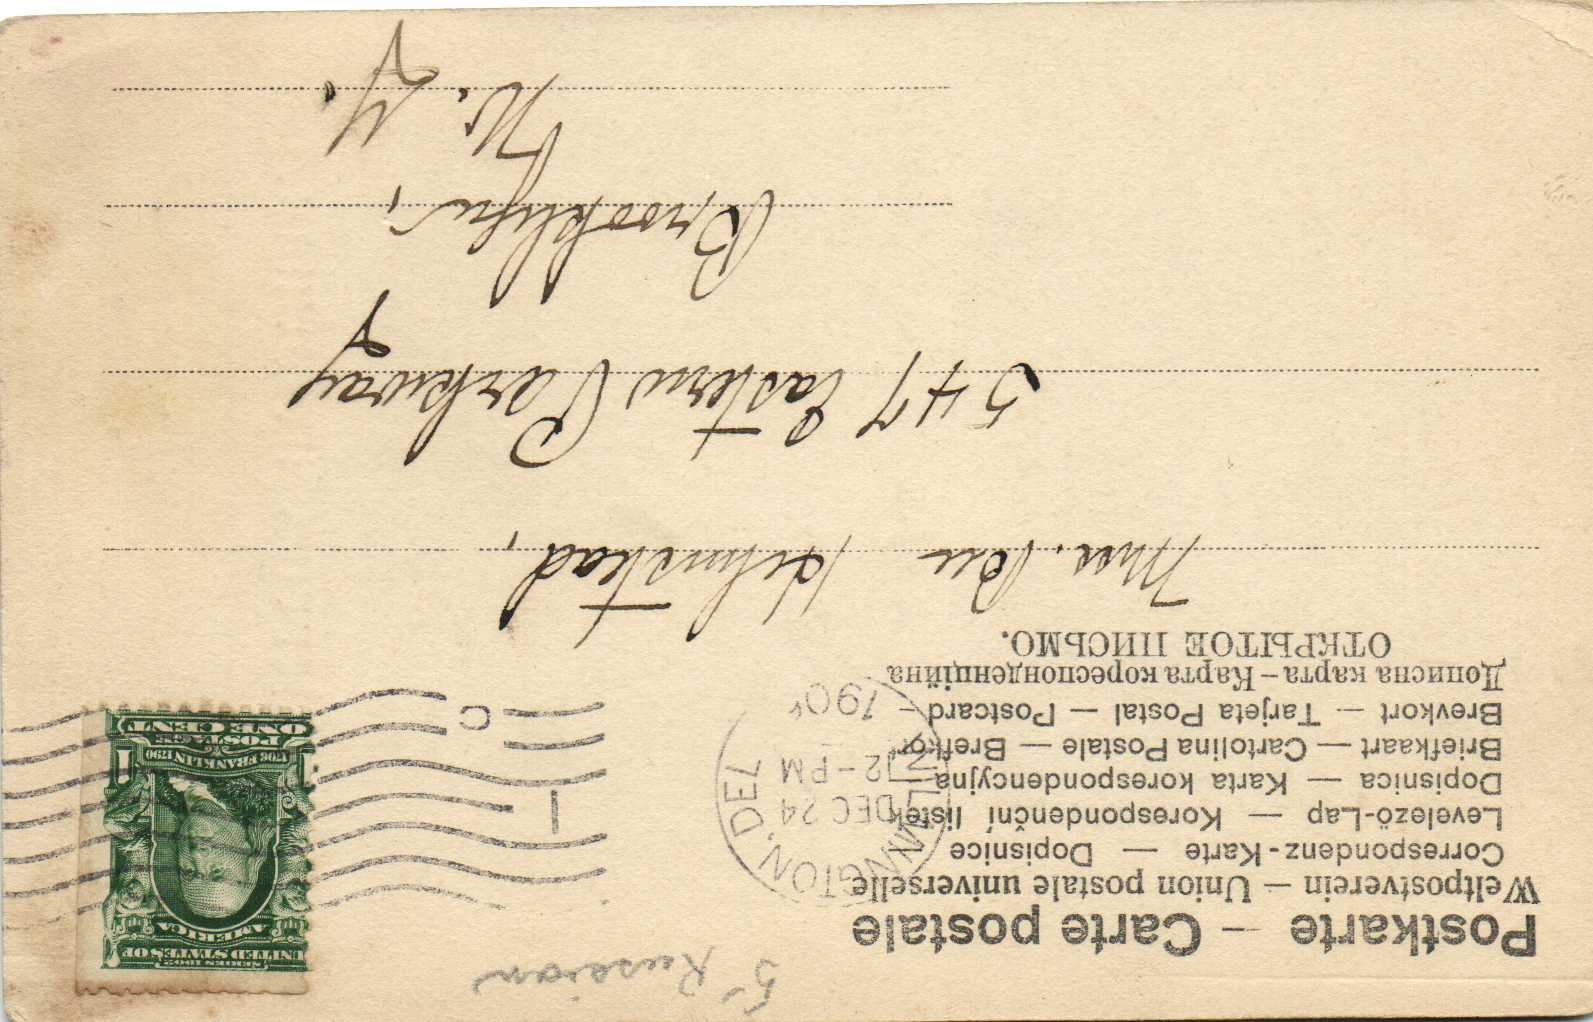 5- Russian
Postkarte – Carte postale
Weltpostverein – Union postale universelle
Correspondenz-Karte — Dopisnice
Levelező-Lap — Korespondenční lístek
Dopisnica — Karta korespondencyjna
Briefkaart — Cartolina Postale — Brefkort
Brevkort — Tarjeta Postal — Postcard —
Дописна карта – Карта кореспонденційна
ОТКРЫТОЕ ПИСЬМО.
WILMINGTON, DEL
DEC 24
12-PM
190
1
C
SERIES 1902
UNITED STATES OF
AMERICA
1706 FRANKLIN 1790
1 POSTAGE 1
ONE CENT
Helmstead,
547 Eastern Parkway
Brooklyn,
N. Y.